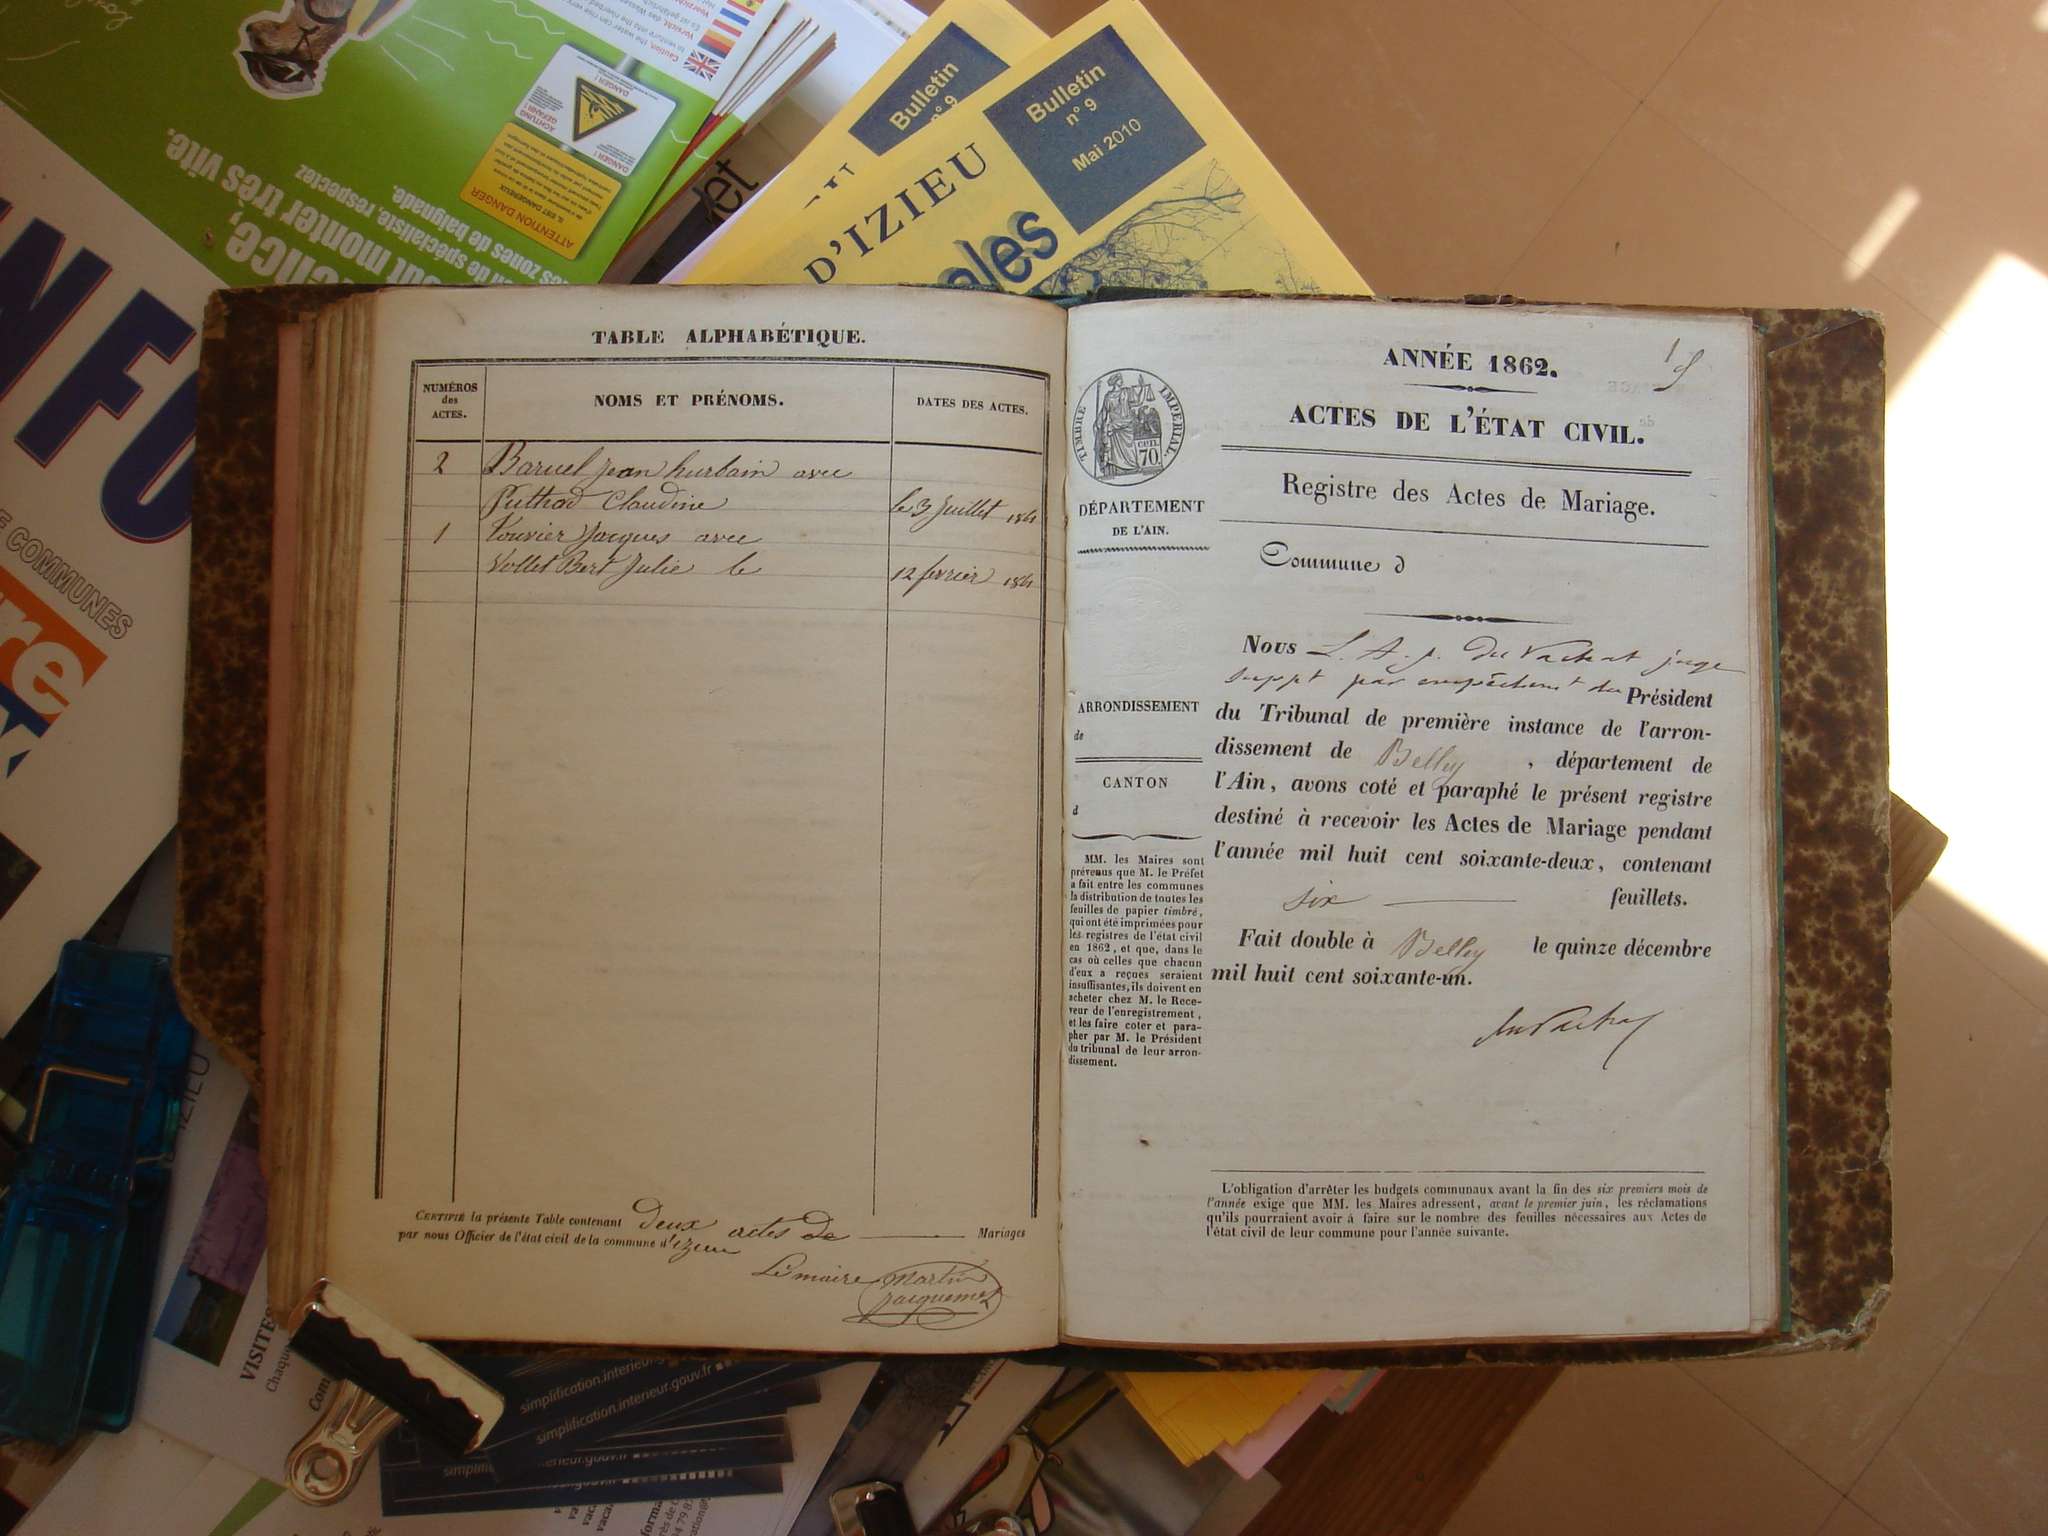 Bulletin
n° 9
Bulletin
n° 9
Mai 2010
D'IZIEU
ales
ATTENTION DANGER
out monter très vite.
zones de baignade.
INFO
COMMUNES
TABLE ALPHABÉTIQUE.
NUMÉROS des ACTES.
NOMS ET PRÉNOMS.
DATES DES ACTES.
2 Baruel Jean hurbain avec
Claudine le 3 Juillet 1861
1 Jacques avec
Vollet Bert Julie le 12 fevrier 1861
CERTIFIÉ la présente Table contenant deux actes de Mariages
par nous Officier de l'état civil de la commune d'izieu
Le maire Martin
Jacquemet
19
ANNÉE 1862.
ACTES DE L'ÉTAT CIVIL.
Registre des Actes de Mariage.
Commune d
TIMBRE IMPERIAL
70 cen.
DÉPARTEMENT
DE L'AIN.
ARRONDISSEMENT
de
CANTON
d
MM. les Maires sont
prévenus que M. le Préfet
a fait entre les communes
la distribution de toutes les
feuilles de papier timbré,
qui ont été imprimées pour
les registres de l'état civil
en 1862, et que, dans le
cas où celles que chacun
d'eux a reçues seraient
insuffisantes, ils doivent en
acheter chez M. le Rece-
veur de l'enregistrement,
et les faire coter et para-
pher par M. le Président
du tribunal de leur arron-
dissement.
Nous L. A. du Vachat juge
suppt par empêchemt du Président
du Tribunal de première instance de l'arron-
dissement de Belley, département de
l'Ain, avons coté et paraphé le présent registre
destiné à recevoir les Actes de Mariage pendant
l'année mil huit cent soixante-deux, contenant
six feuillets.
Fait double à Belley le quinze décembre
mil huit cent soixante-un.
du Vachat
L'obligation d'arrêter les budgets communaux avant la fin des six premiers mois de
l'année exige que MM. les Maires adressent, avant le premier juin, les réclamations
qu'ils pourraient avoir à faire sur le nombre des feuilles nécessaires aux Actes de
l'état civil de leur commune pour l'année suivante.
IZIEU
VISITE
Chaque
simplification.interieur.gouv.fr
simplification.interieur.gouv.fr